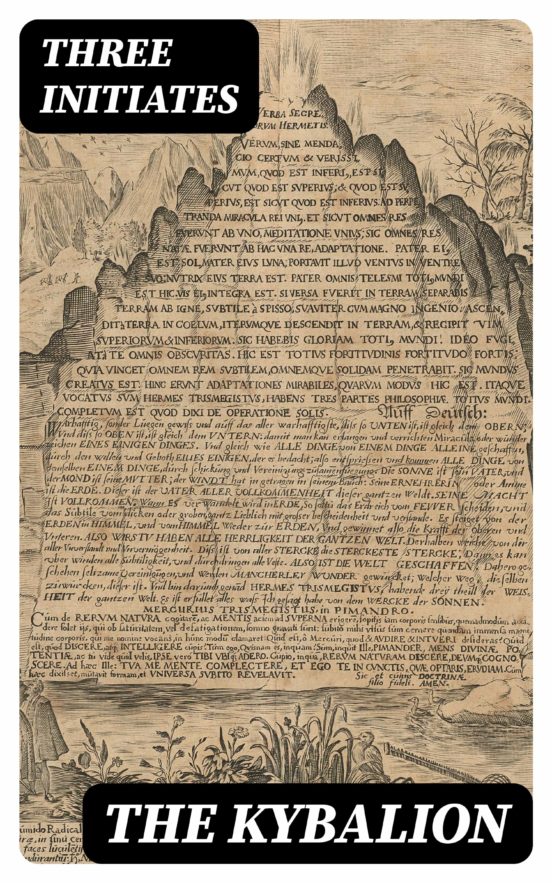 THREE
INITIATES
VERBA SECRE
TORUM HERMETIS.
VERUM, SINE MENDA
CIO CERTUM & VERISSI
MUM, QUOD EST INFERI, EST SI
CUT QUOD EST SUPERIUS, & QUOD EST SU
PERIUS, EST SICUT QUOD EST INFERIUS. AD PERPE
TRANDA MIRACULA REI UNI, ET SICUT OMNES RES
FUERUNT AB UNO, MEDITATIONE UNIUS, SIC OMNES RES
NATÆ FUERUNT AB HAC UNA RE, ADAPTATIONE. PATER EI,
EST SOL, MATER EIUS LUNA; PORTAVIT ILLUD VENTUS IN VENTRE
SUO; NUTRIX EIUS TERRA EST. PATER OMNIS TELESMI TOTI, MUNDI
EST HIC. VIS EI, INTEGRA EST. SI VERSA FUERIT IN TERRAM, SEPARABIS
TERRAM AB IGNE, SUBTILE à SPISSO, SUAVITER CUM MAGNO INGENIO. ASCEN,
DIT à TERRA IN COELUM, ITERUMQUE DESCENDIT IN TERRAM, & RECIPIT VIM
SUPERIORUM & INFERIORUM. SIC HABEBIS GLORIAM TOTI, MUNDI. IDEO FUGI,
AT à TE OMNIS OBSCURITAS. HIC EST TOTIUS FORTITUDINIS FORTITUDO FORTIS:
QUIA VINCET OMNEM REM SUBTILEM, OMNEMQUE SOLIDAM PENETRABIT. SIC MUNDUS
CREATUS EST. HINC ERUNT ADAPTATIONES MIRABILES, QUARUM MODUS HIC EST. ITAQUE
VOCATUS SUM HERMES TRISMEGISTUS, HABENS TRES PARTES PHILOSOPHIÆ TOTIUS MUNDI.
COMPLETUM EST QUOD DIXI DE OPERATIONE SOLIS. Auff Deutsch:
Warhafftig, sonder Luegen gewiß und auff das aller warhafftigste, diß so UNTEN ist, ist gleich dem OBERN;
Und diß so OBEN ist, ist gleich dem UNTERN: damit man kan erlangen und verrichten Miracula oder wunder
zeichen EINES EINIGEN DINGES. Und gleich wie ALLE DINGE von EINEM DINGE ALLEINE geschaffen,
durch den willen und Geboth EINES EINIGEN, der es bedacht: also entspriessen und kommen ALLE DINGE von
demselben EINEM DINGE, durch schickung und Vereinigung. Die SONNE ist sein VATER, und
der MOND ist seine MUTTER; der WINDT hat in getragen in seinem Bauch: Seine ERNEHRERIN oder Amme
ist die ERDE. Dieser ist der VATER ALLER VOLLKOMMENHEIT dieser gantzen Weldt. SEINE MACHT
IST VOLLKOMMEN, Wann ES verwandelt wird in ERDE, So solstu das Erdreich vom FEWER scheiden, und
das Subtile vom dicken oder groben, gantz Lieblich mit grosser bescheidenheit und verstande. Er steiget von der
ERDEN in HIMMEL, und vom HIMMEL Wieder zur ERDEN, Und gewinnet also die Krafft der Obern und
Untern. ALSO WIRSTU HABEN ALLE HERRLIGKEIT DER GANTZEN WELT. Derhalben weiche von dir
aller Unverstandt und Unvermögenheit. Diß ist von aller STERCKE die STERCKESTE STERCKE. Dann es kan
über winden alle Subtiligkeit, und durchdringen alle Veste. ALSO IST DIE WELT GESCHAFFEN. Dahero ge
schehen seltzame Vereinigungen, und Werden MANCHERLEY WUNDER gewürcket, Welcher Weg dieselben
zu würcken, dieser ist. Und bin darumb genandt HERMES TRISMEGISTUS, habend drey theill der WEIS
HEIT der gantzen Welt. Es ist erfüllet alles waß ich gesagt habe von dem WERCKE der SONNEN.
MERCURIUS TRISMEGISTUS, in PIMANDRO.
Cum de RERUM NATURA cogitarē, ac MENTIS aciem ad SUPERNA erigerē, sopitis iam corporis sensibus, quemadmodum acci
dere solet iis, qui ob saturitatem, vel defatigationem, somno gravati sunt: subitò mihi visus sum cernere quendam immensâ magni
tudine corporis, qui me nomine vocans, in hunc modū clamaret: Quid est, ô Mercuri, quod & AUDIRE & INTUERI desideras? Quid
est, quod DISCERE, atq; INTELLIGERE cupis? Tum ego, Quisnam es, inquam? Sum, inquit Ille, PIMANDER, MENS DIVINÆ PO,
TENTIÆ, ac tu vide quid velis, IPSE verò TIBI UBIQ; ADERO. Cupio, inquā, RERUM NATURAM DISCERE, DEUMQ; COGNO
SCERE. Ad hæc Ille: TUA ME MENTE COMPLECTERE, ET EGO TE IN CUNCTIS, QUÆ OPTARIS, ERUDIAM. Cum
hæc dixisset, mutavit formam, et UNIVERSA SUBITO REVELAVIT. Sic et cuius DOCTRINÆ
filio fideli. AMEN.
umido Radical
THE KYBALION